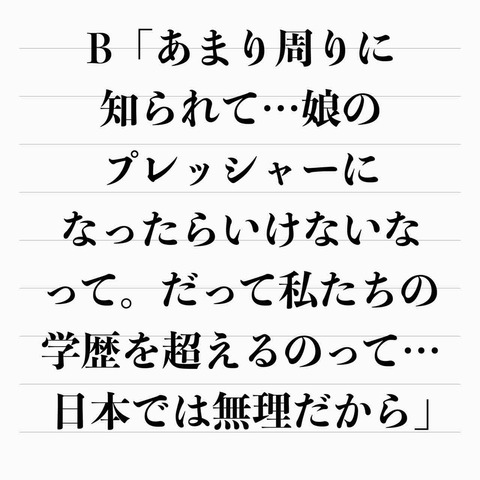 B「あまり周りに
知られて…娘の
プレッシャーに
なったらいけないな
って。だって私たちの
学歴を超えるのって…
日本では無理だから」